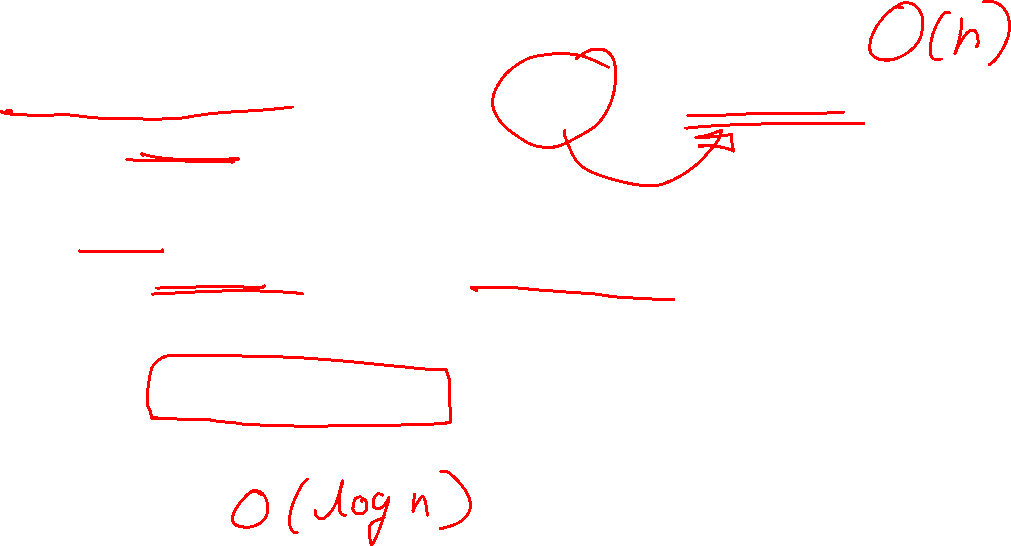 O(n)
O(log n)